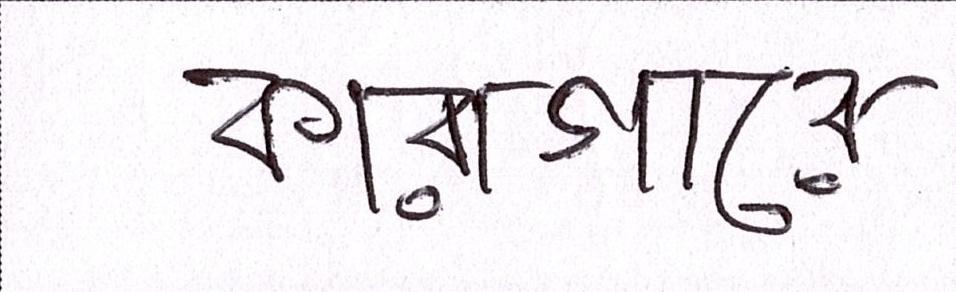 কারাগারে